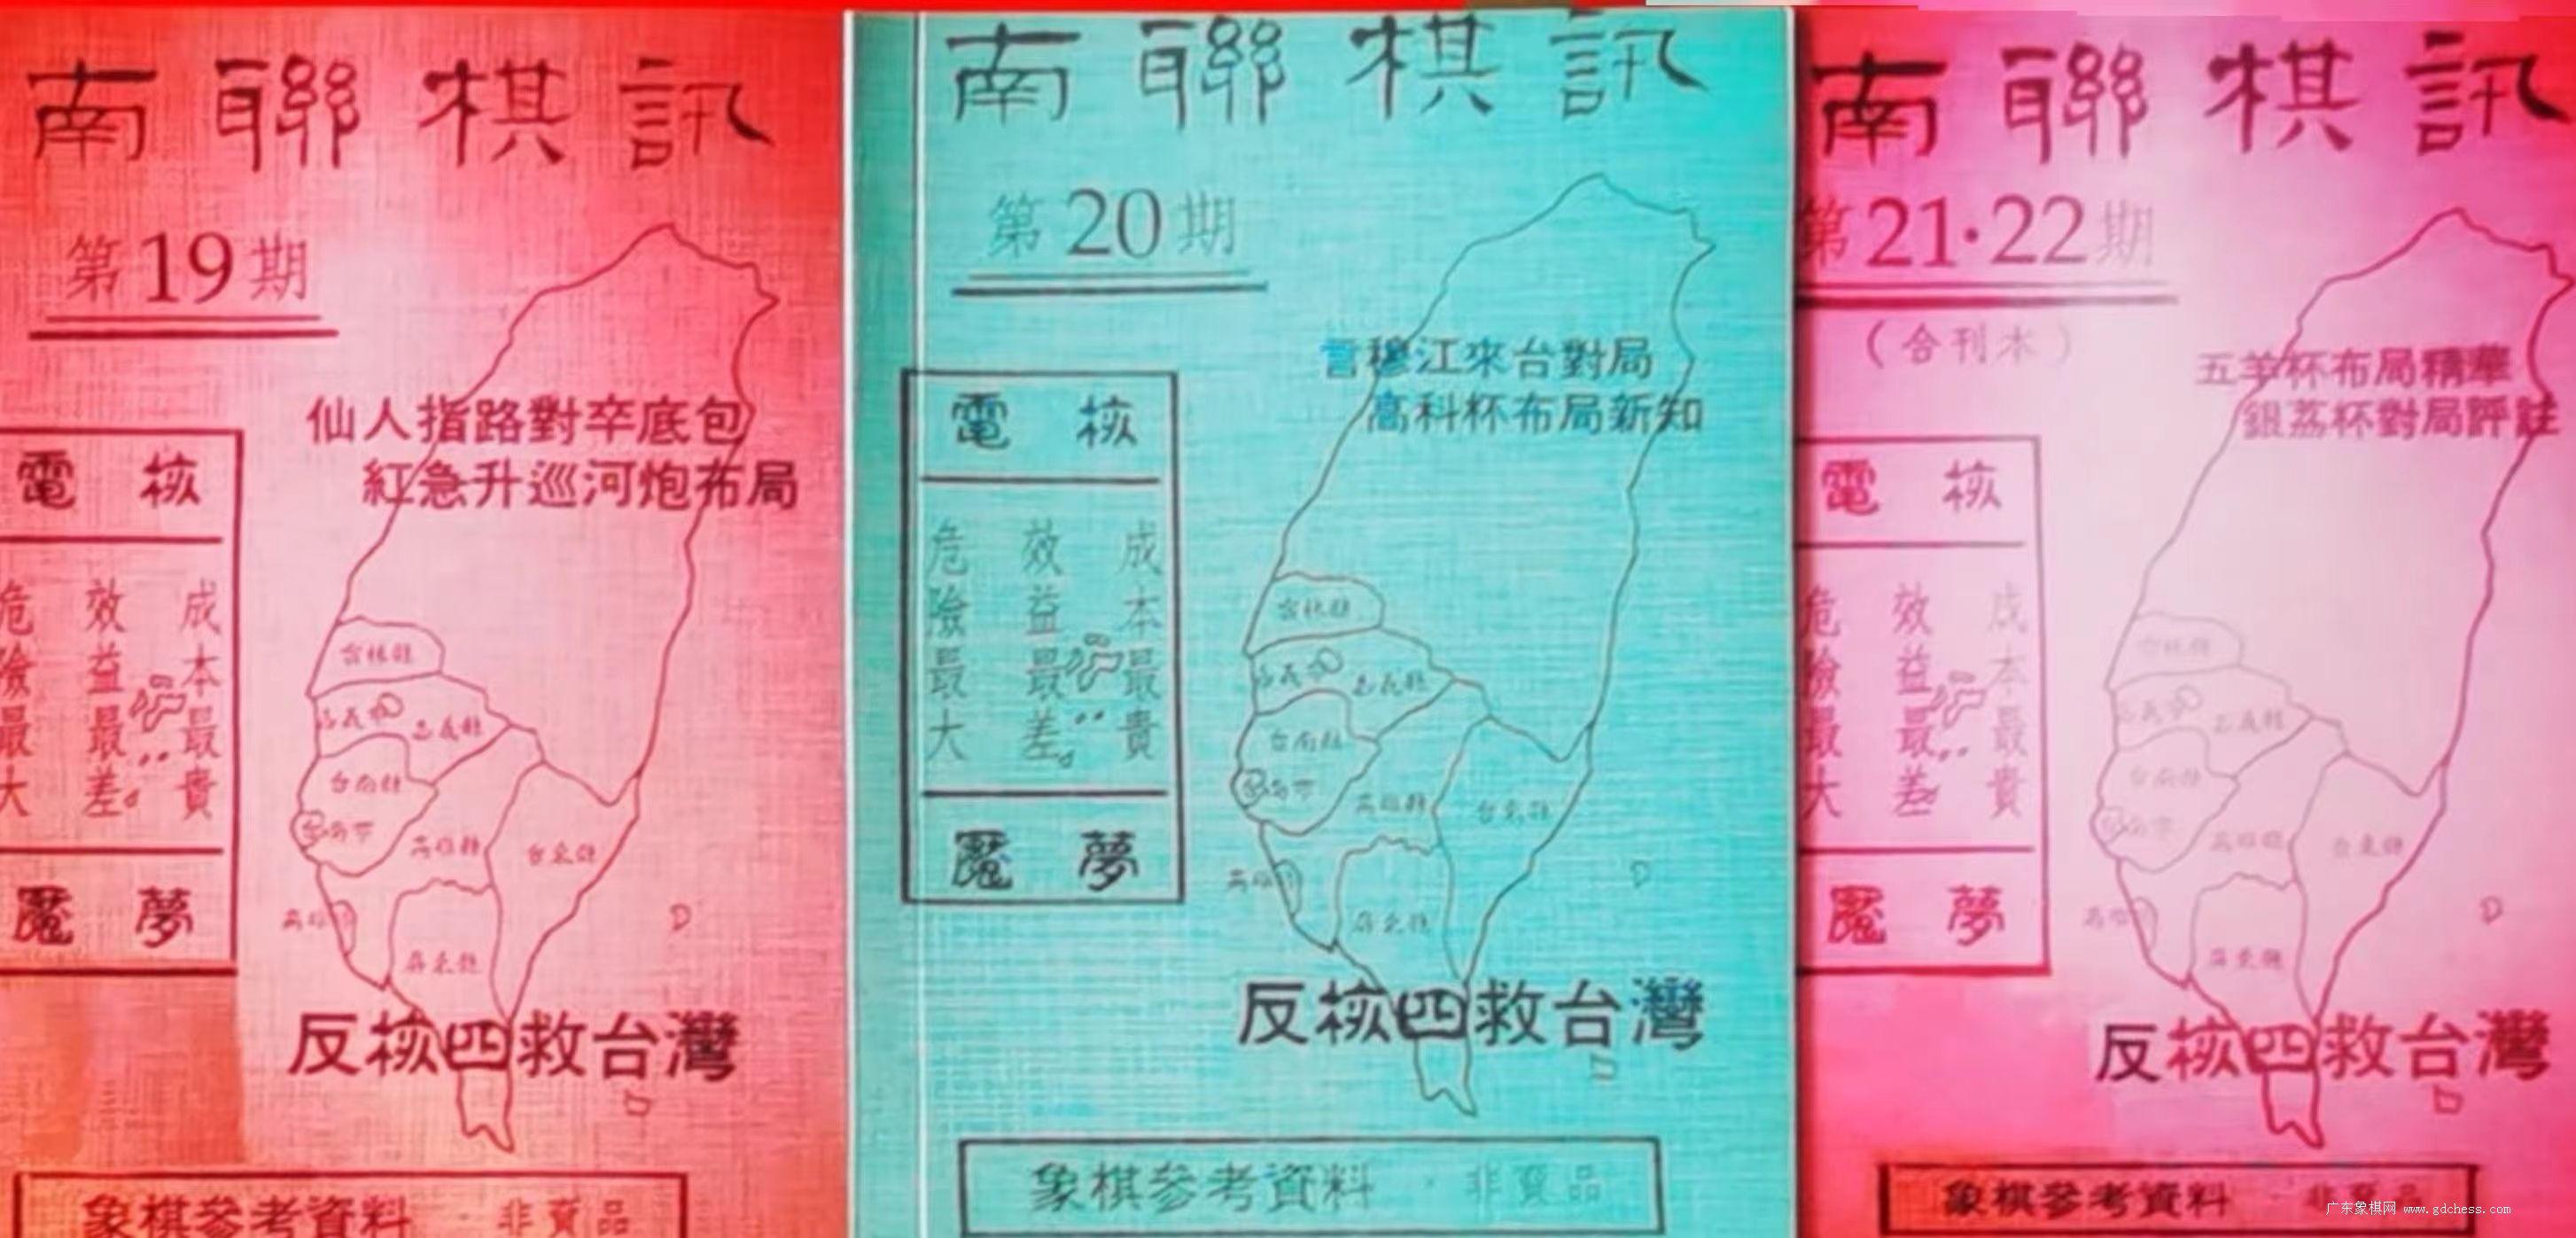 南聯棋訊
第19期
仙人指路對卒底包
紅急升巡河炮布局
核電
成本最貴
效益最差
危險最大
夢魘
雲林縣
嘉義市
嘉義縣
台南縣
台南市
高雄縣
台東縣
高雄市
屏東縣
反核四救台灣
象棋參考資料·非賣品
南聯棋訊
第20期
言穆江來台對局
高科杯布局新知
核電
成本最貴
效益最差
危險最大
夢魘
雲林縣
嘉義市
嘉義縣
台南縣
台南市
高雄縣
台東縣
高雄市
屏東縣
反核四救台灣
象棋參考資料·非賣品
南聯棋訊
第21·22期
（合刊本）
五羊杯布局精華
銀荔杯對局評註
核電
成本最貴
效益最差
危險最大
夢魘
雲林縣
嘉義市
嘉義縣
台南縣
台南市
高雄縣
台東縣
高雄市
屏東縣
反核四救台灣
象棋參考資料·非賣品
广东象棋网 www.gdchess.com